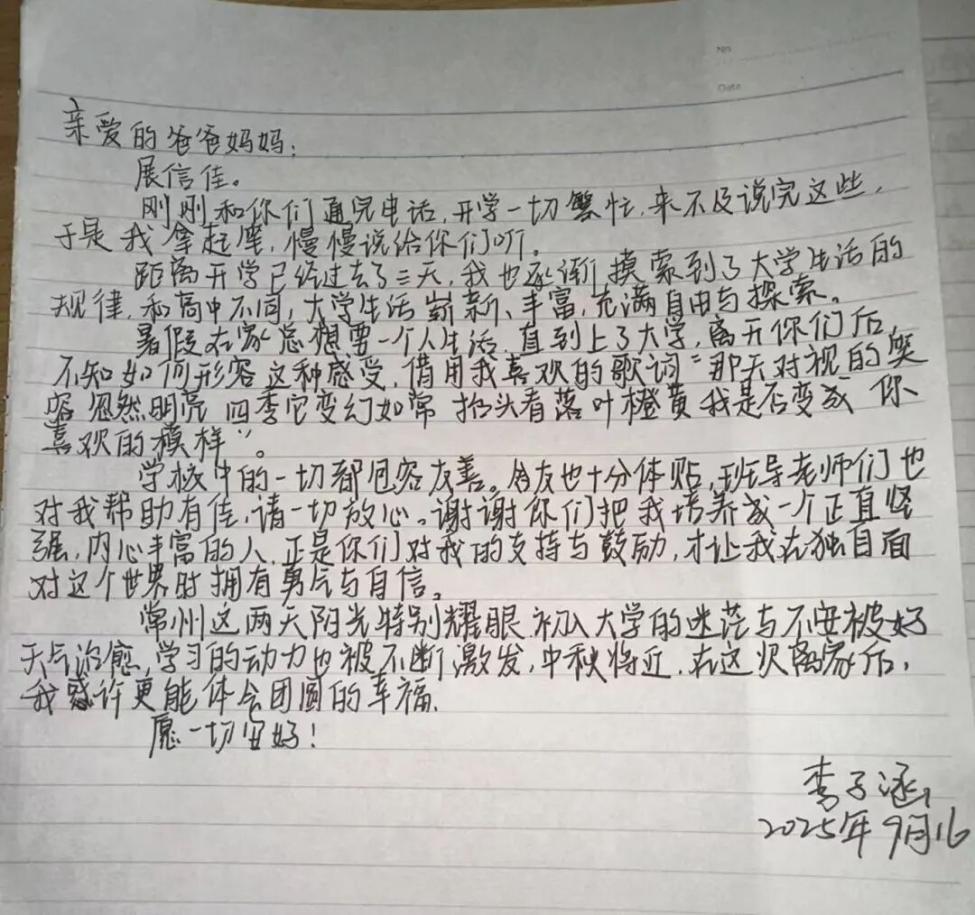 No
Date
亲爱的爸爸妈妈:
展信佳。
刚刚和你们通完电话,开学一切繁忙,来不及说完这些,
于是我拿起笔,慢慢说给你们听。
距离开学已经过去了三天,我也逐渐摸索到了大学生活的
规律,和高中不同,大学生活崭新、丰富,充满自由与探索。
暑假在家总想要一个人生活,直到上了大学,离开你们后,
不知如何形容这种感受,借用我喜欢的歌词“那天对视的笑
容 忽然明亮 四季它变幻如常 抬头看落叶橙黄 我是否变成 你
喜欢的模样”。
学校中的一切都包容友善。舍友也十分体贴,班导老师们也
对我帮助有佳,请一切放心。谢谢你们把我培养成一个正直坚
强,内心丰富的人,正是你们对我的支持与鼓励,才让我在独自面
对这个世界时拥有勇气与自信。
常州这两天阳光特别耀眼,初入大学的迷茫与不安被好
天气治愈,学习的动力也被不断激发,中秋将近,在这次离家后,
我或许更能体会团圆的幸福。
愿一切安好!
李子涵
2025年9月16